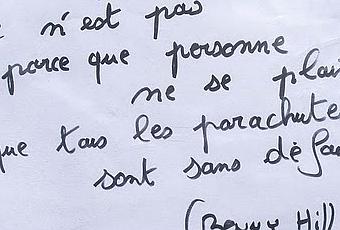 n'est pas
parce que personne
ne se plai
que tous les parachute
sont sans défau
(Benny Hill)